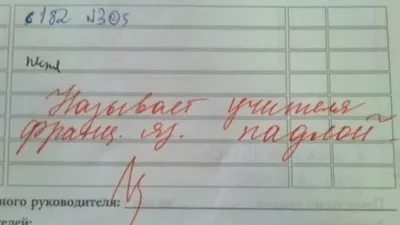 с 182 №305
пение
Называет учителя
франц. яз. падлой
ного руководителя:
телей: